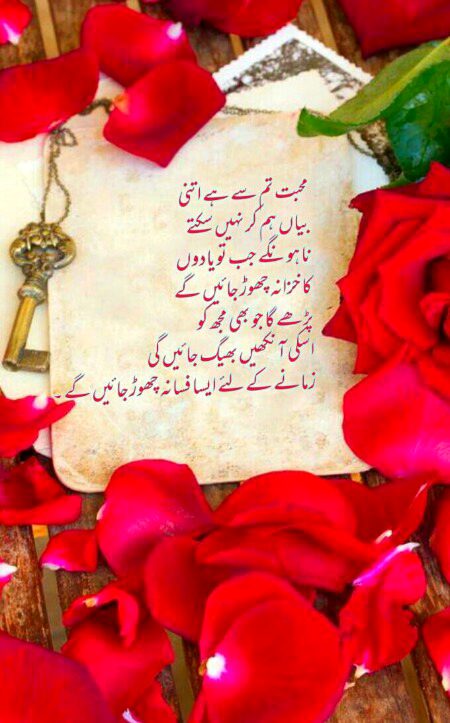 محبت تم سے ہے اتنی
بیاں ہم کر نہیں سکتے
نا ہونگے جب تو یادوں
کا خزانہ چھوڑ جائیں گے
پڑھے گا جو بھی مجھ کو
اسکی آنکھیں بھیگ جائیں گی
زمانے کے لئے ایسا فسانہ چھوڑ جائیں گے ۔